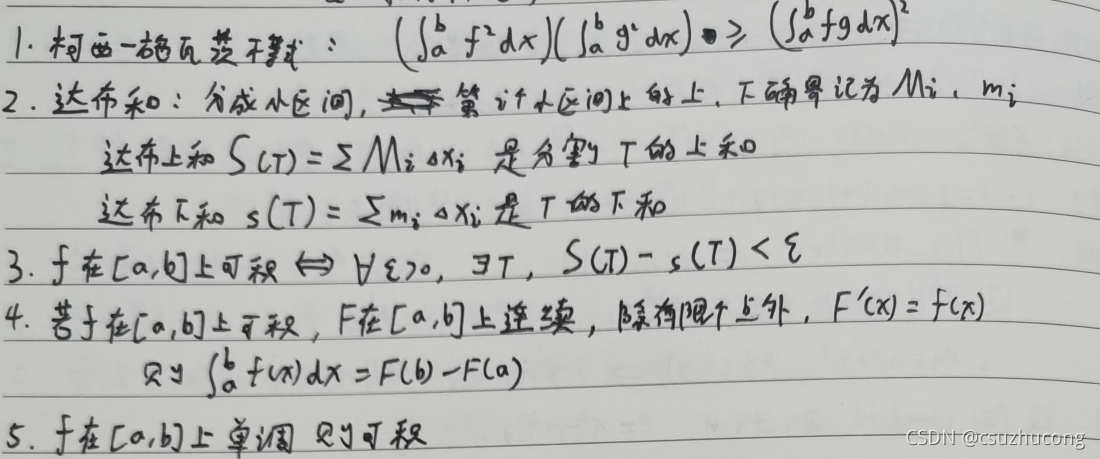 1. 柯西一施瓦茨不等式： (∫ₐᵇ f²dx)(∫ₐᵇ g²dx) ≥ (∫ₐᵇ fgdx)²
2. 达布和：分成小区间，第i个小区间上的上、下确界记为Mᵢ、mᵢ
达布上和 S(T) = ΣMᵢΔxᵢ 是分割T的上和
达布下和 s(T) = ΣmᵢΔxᵢ 是T的下和
3. f在[a,b]上可积 ⇔ ∀ε>0, ∃T, S(T) - s(T) < ε
4. 若f在[a,b]上可积，F在[a,b]上连续，除有限个点外，F'(x) = f(x)
则 ∫ₐᵇ f(x)dx = F(b) - F(a)
5. f在[a,b]上单调则可积
CSDN @csuzhucong